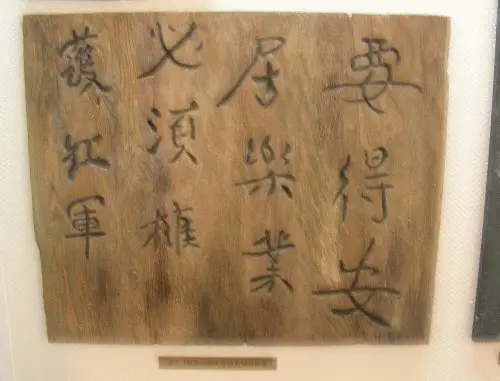 要得安
居樂業
必須擁
護紅軍